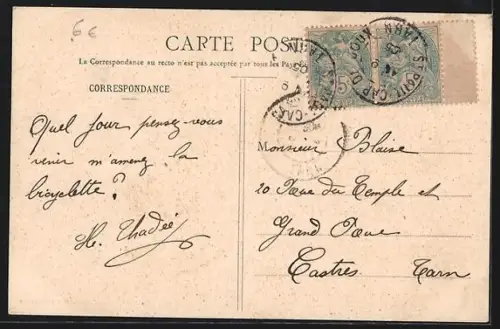 6€
CARTE POST
La Correspondance au recto n'est pas acceptée par tous les Pays
CORRESPONDANCE
Quel jour pensez-vous
venir m'amener la
bicyclette ?
H. Thadée
Monsieur Blaise
20 Place du Temple et
Grand Place
Castres Tarn
5
TARN